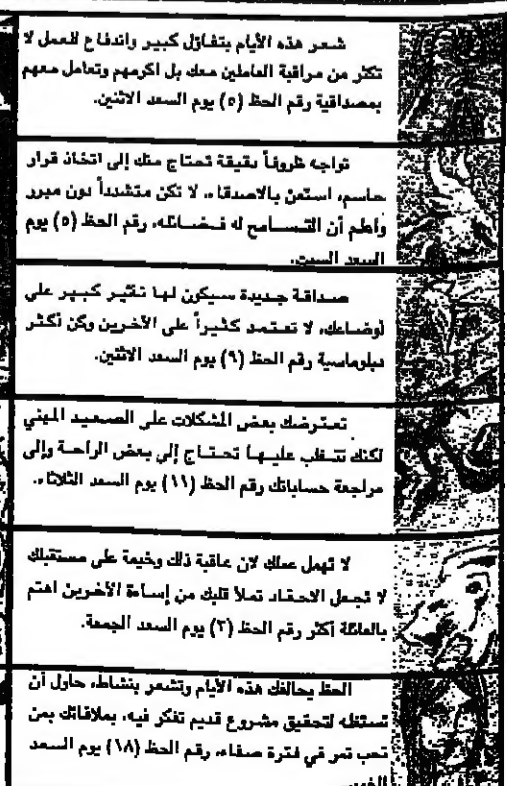 شعر هذه الأيام بتفاؤل كبير واندفاع للعمل لا
تكثر من مراقبة العاملين معك بل اكرمهم وتعامل معهم
بمصداقية رقم الحظ (٥) يوم السعد الاثنين.
تواجه ظروفاً دقيقة تحتاج منك إلى اتخاذ قرار
حاسم، استعن بالاصدقاء، لا تكن متشدداً دون مبرر
وأعلم أن التسامح له فضائله، رقم الحظ (٥) يوم
السعد السبت.
صداقة جديدة سيكون لها تأثير كبير على
أوضاعك، لا تعتمد كثيراً على الآخرين وكن أكثر
دبلوماسية رقم الحظ (٩) يوم السعد الاثنين.
تعترضك بعض المشكلات على الصعيد المهني
لكنك تتغلب عليها تحتاج إلى بعض الراحة وإلى
مراجعة حساباتك رقم الحظ (١١) يوم السعد الثلاثاء.
لا تهمل عملك لان عاقبة ذلك وخيمة على مستقبلك
لا تجعل الاحقاد تملأ قلبك من إساءة الآخرين اهتم
بالعائلة أكثر رقم الحظ (٢) يوم السعد الجمعة.
الحظ يحالفك هذه الأيام وتشعر بنشاط، حاول أن
تستغله لتحقيق مشروع قديم تفكر فيه، علاقاتك بمن
تحب تمر في فترة صفاء، رقم الحظ (١٨) يوم السعد